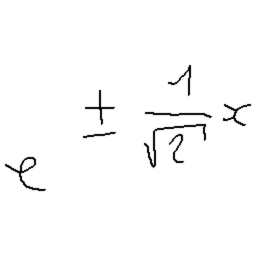 e^{\pm \frac{1}{\sqrt{2}} x}